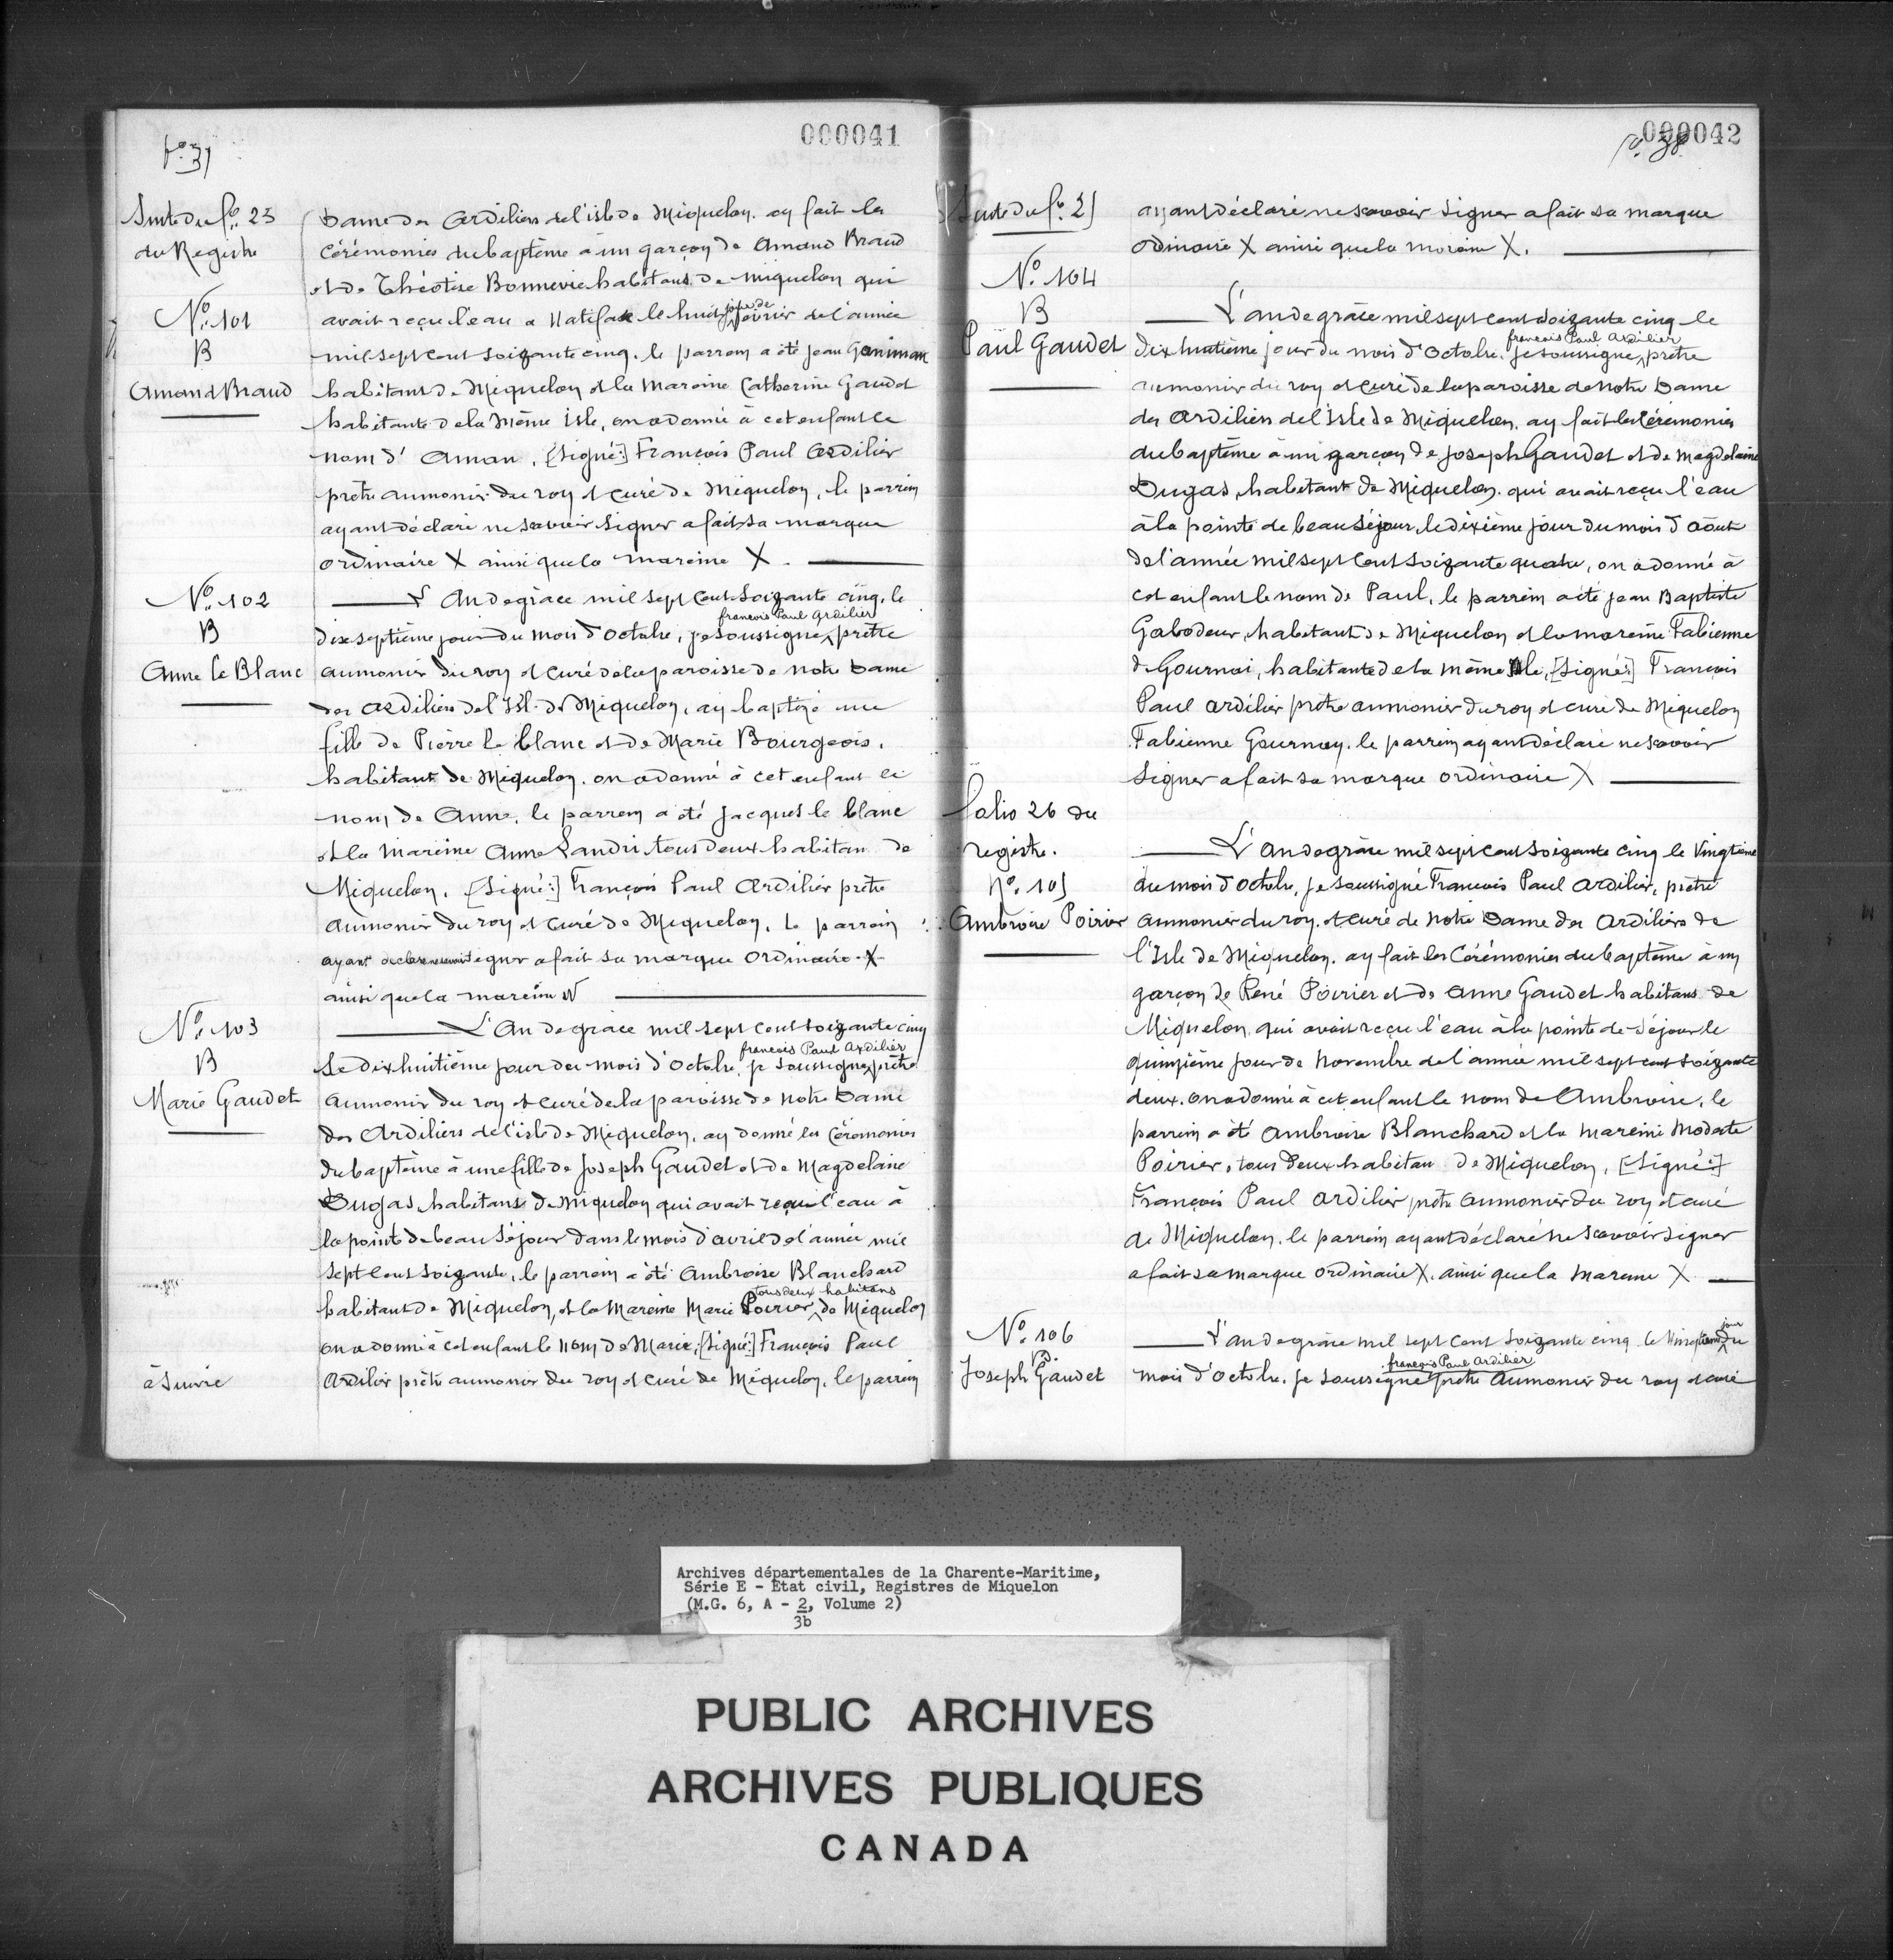 000041
fo. 37
Suite du fo. 25
du Registre
Dame des Ardiliers de l'isle de Miquelon. ay fait les
Cérémonies du baptême à un garçon de Amand Braud
et de Théotise Bonnevie habitans de Miquelon qui
No. 101
B
Amand Braud
avait reçu l'eau a Halifax le huit jour de février de l'année
mil sept cent soixante cinq. le parrom a été jean Ganiman
habitant de Miquelon et la Maroine Catherine Gaudet
habitante de la Même Isle, on a donné à cet enfant le
nom d' Aman. [Signé:] François Paul Ardilier
prêtre aumonier du roy et curé de Miquelon, le parrin
ayant déclaré ne savoir signer a fait sa marque
ordinaire X ainsi que la mareine X.
No. 102
B
Anne le Blanc
L'An de grace mil sept cent soixante cinq, le
françois Paul Ardilier
dix septième jour du mois d'octobre, je soussigné, prêtre
aumonier du roy et curé de la paroisse de Notre Dame
des Ardiliers de l'Isle de Miquelon, ay baptizé une
fille de Pierre le blanc et de Marie Bourgeois,
habitant de Miquelon. on a donné à cet enfant le
nom de Anne, le parrein a été Jacques le blanc
et la mareine Anne Landri tous deux habitan de
Miquelon. [Signé:] François Paul Ardilier prêtre
aumonier du roy et curé de Miquelon. le parrein
ayant declare ne savoir signer a fait sa marque Ordinaire X
ainsi que la mareine
No. 103
B
Marie Gaudet
L'An de grace mil sept cent soixante cinq
françois Paul Ardilier
Le dix huitième jour du mois d'octobre, je soussigné, prêtre
aumonier du roy et curé de la paroisse de Notre Dame
des Ardiliers de l'isle de Miquelon, ay donné les Cérémonies
du baptême à une fille de Joseph Gaudet et de Magdelaine
Dugas habitans de Miquelon qui avait reçu l'eau à
la pointe de beau Séjour dans le mois d'avril de l'année mil
sept cent soixante, le parrein a été Ambroise Blanchard
tous deux habitans
habitant de Miquelon, et la Mareine Marie Poirier, de Miquelon
on a donné à cet enfant le nom de Marie. [Signé:] François Paul
à Suivre
Ardilier prêtre aumonier du roy et curé de Miquelon, le parrein
000042
fo. 38
Suite du fo. 25
ayant déclaré ne savoir signer a fait sa marque
ordinaire X ainsi que la mareine X.
No. 104
B
Paul Gaudet
L'an de grâce mil sept cent soixante cinq le
françois Paul Ardilier
dix huitième jour du mois d'Octobre. Je soussigné, prêtre
aumonier du roy et curé de la paroisse de Notre Dame
des Ardiliers de l'Isle de Miquelon, ay fait les Cérémonies
du baptême à un garçon de Joseph Gaudet et de Magdelaine
Dugas, habitant de Miquelon. qui avait reçu l'eau
à la pointe de beau Séjour, le dixième jour du mois d'Août
de l'année mil sept cent soixante quatre, on a donné à
cet enfant le nom de Paul, le parrein a été jean Baptiste
Gabodeur, habitant de Miquelon et la mareine Fabienne
de Gournai, habitante de la même Isle. [Signé:] François
Paul Ardilier prêtre aumonier du roy et curé de Miquelon
Fabienne Gournay. le parrein ayant déclaré ne savoir
signer a fait sa marque ordinaire X
folio 26 du
registre.
No. 105
Ambroise Poirier
L'an de grâce mil sept cent soixante cinq le Vingtième
du mois d'octobre, je soussigné François Paul Ardilier, prêtre
aumonier du roy. et curé de Notre Dame des Ardiliers de
l'Isle de Miquelon. ay fait les Cérémonies du baptême à un
garçon de René Poirier et de Anne Gaudet habitans de
Miquelon, qui avait reçu l'eau à la pointe de Séjour le
quinzième jour de Novembre de l'année mil sept cent soixante
deux. on a donné à cet enfant le nom de Ambroise. le
parrein a été Ambroise Blanchard et la mareine Modeste
Poirier, tous deux habitan de Miquelon, [Signé:]
François Paul Ardilier, prêtre aumonier du roy et curé
de Miquelon. le parrein ayant déclaré ne savoir signer
a fait sa marque ordinaire X. ainsi que la mareine X
No. 106
B.
Joseph Gaudet
L'an de grâce mil sept cent soixante cinq le Vingtième jour du
françois Paul Ardilier
mois d'octobre. je soussigné prêtre Aumonier du roy et curé
Archives départementales de la Charente-Maritime,
Série E - État civil, Registres de Miquelon
(M.G. 6, A - 2, Volume 2)
3b
PUBLIC ARCHIVES
ARCHIVES PUBLIQUES
CANADA